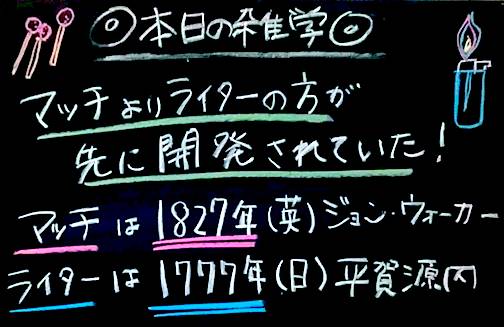 ◎本日の雑学◎
マッチよりライターの方が
先に開発されていた!
マッチは1827年(英)ジョン・ウォーカー
ライターは1777年(日)平賀源内